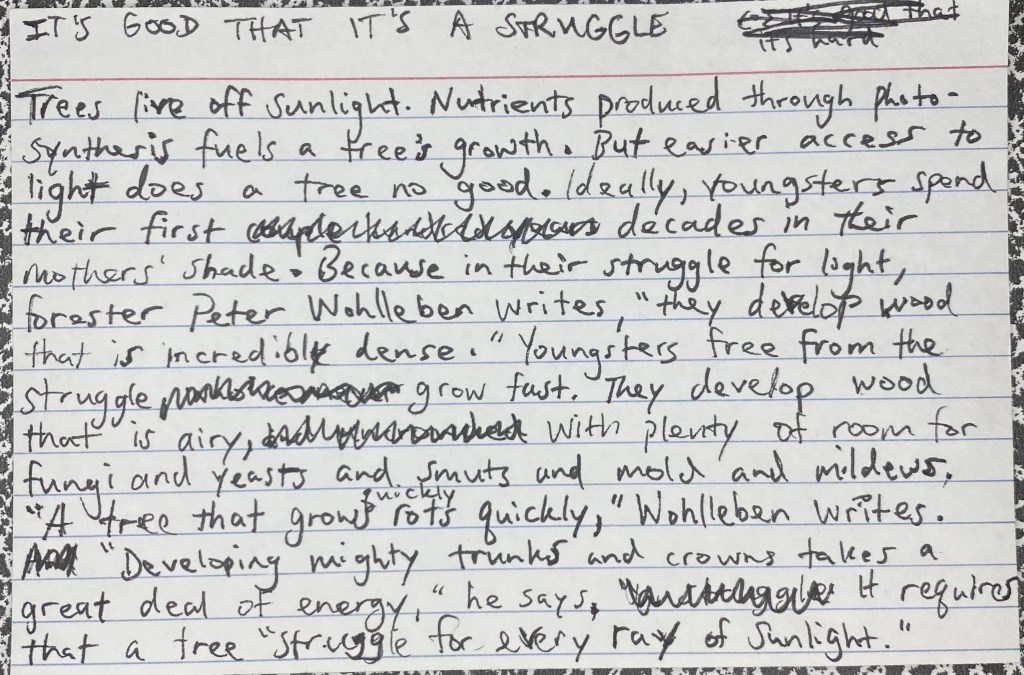 IT'S GOOD THAT IT'S A STRUGGLE
it's good that
its hard
Trees live off sunlight. Nutrients produced through photo-
synthesis fuels a tree's growth. But easier access to
light does a tree no good. Ideally, youngsters spend
their first decades in their
mothers' shade. Because in their struggle for light,
forester Peter Wohlleben writes, "they develop wood
that is incredibly dense." Youngsters free from the
struggle grow fast. They develop wood
that is airy, with plenty of room for
fungi and yeasts and smuts and mold and mildews.
quickly
"A tree that grows rots quickly," Wohlleben writes.
"Developing mighty trunks and crowns takes a
great deal of energy," he says, It requires
that a tree "struggle for every ray of sunlight."